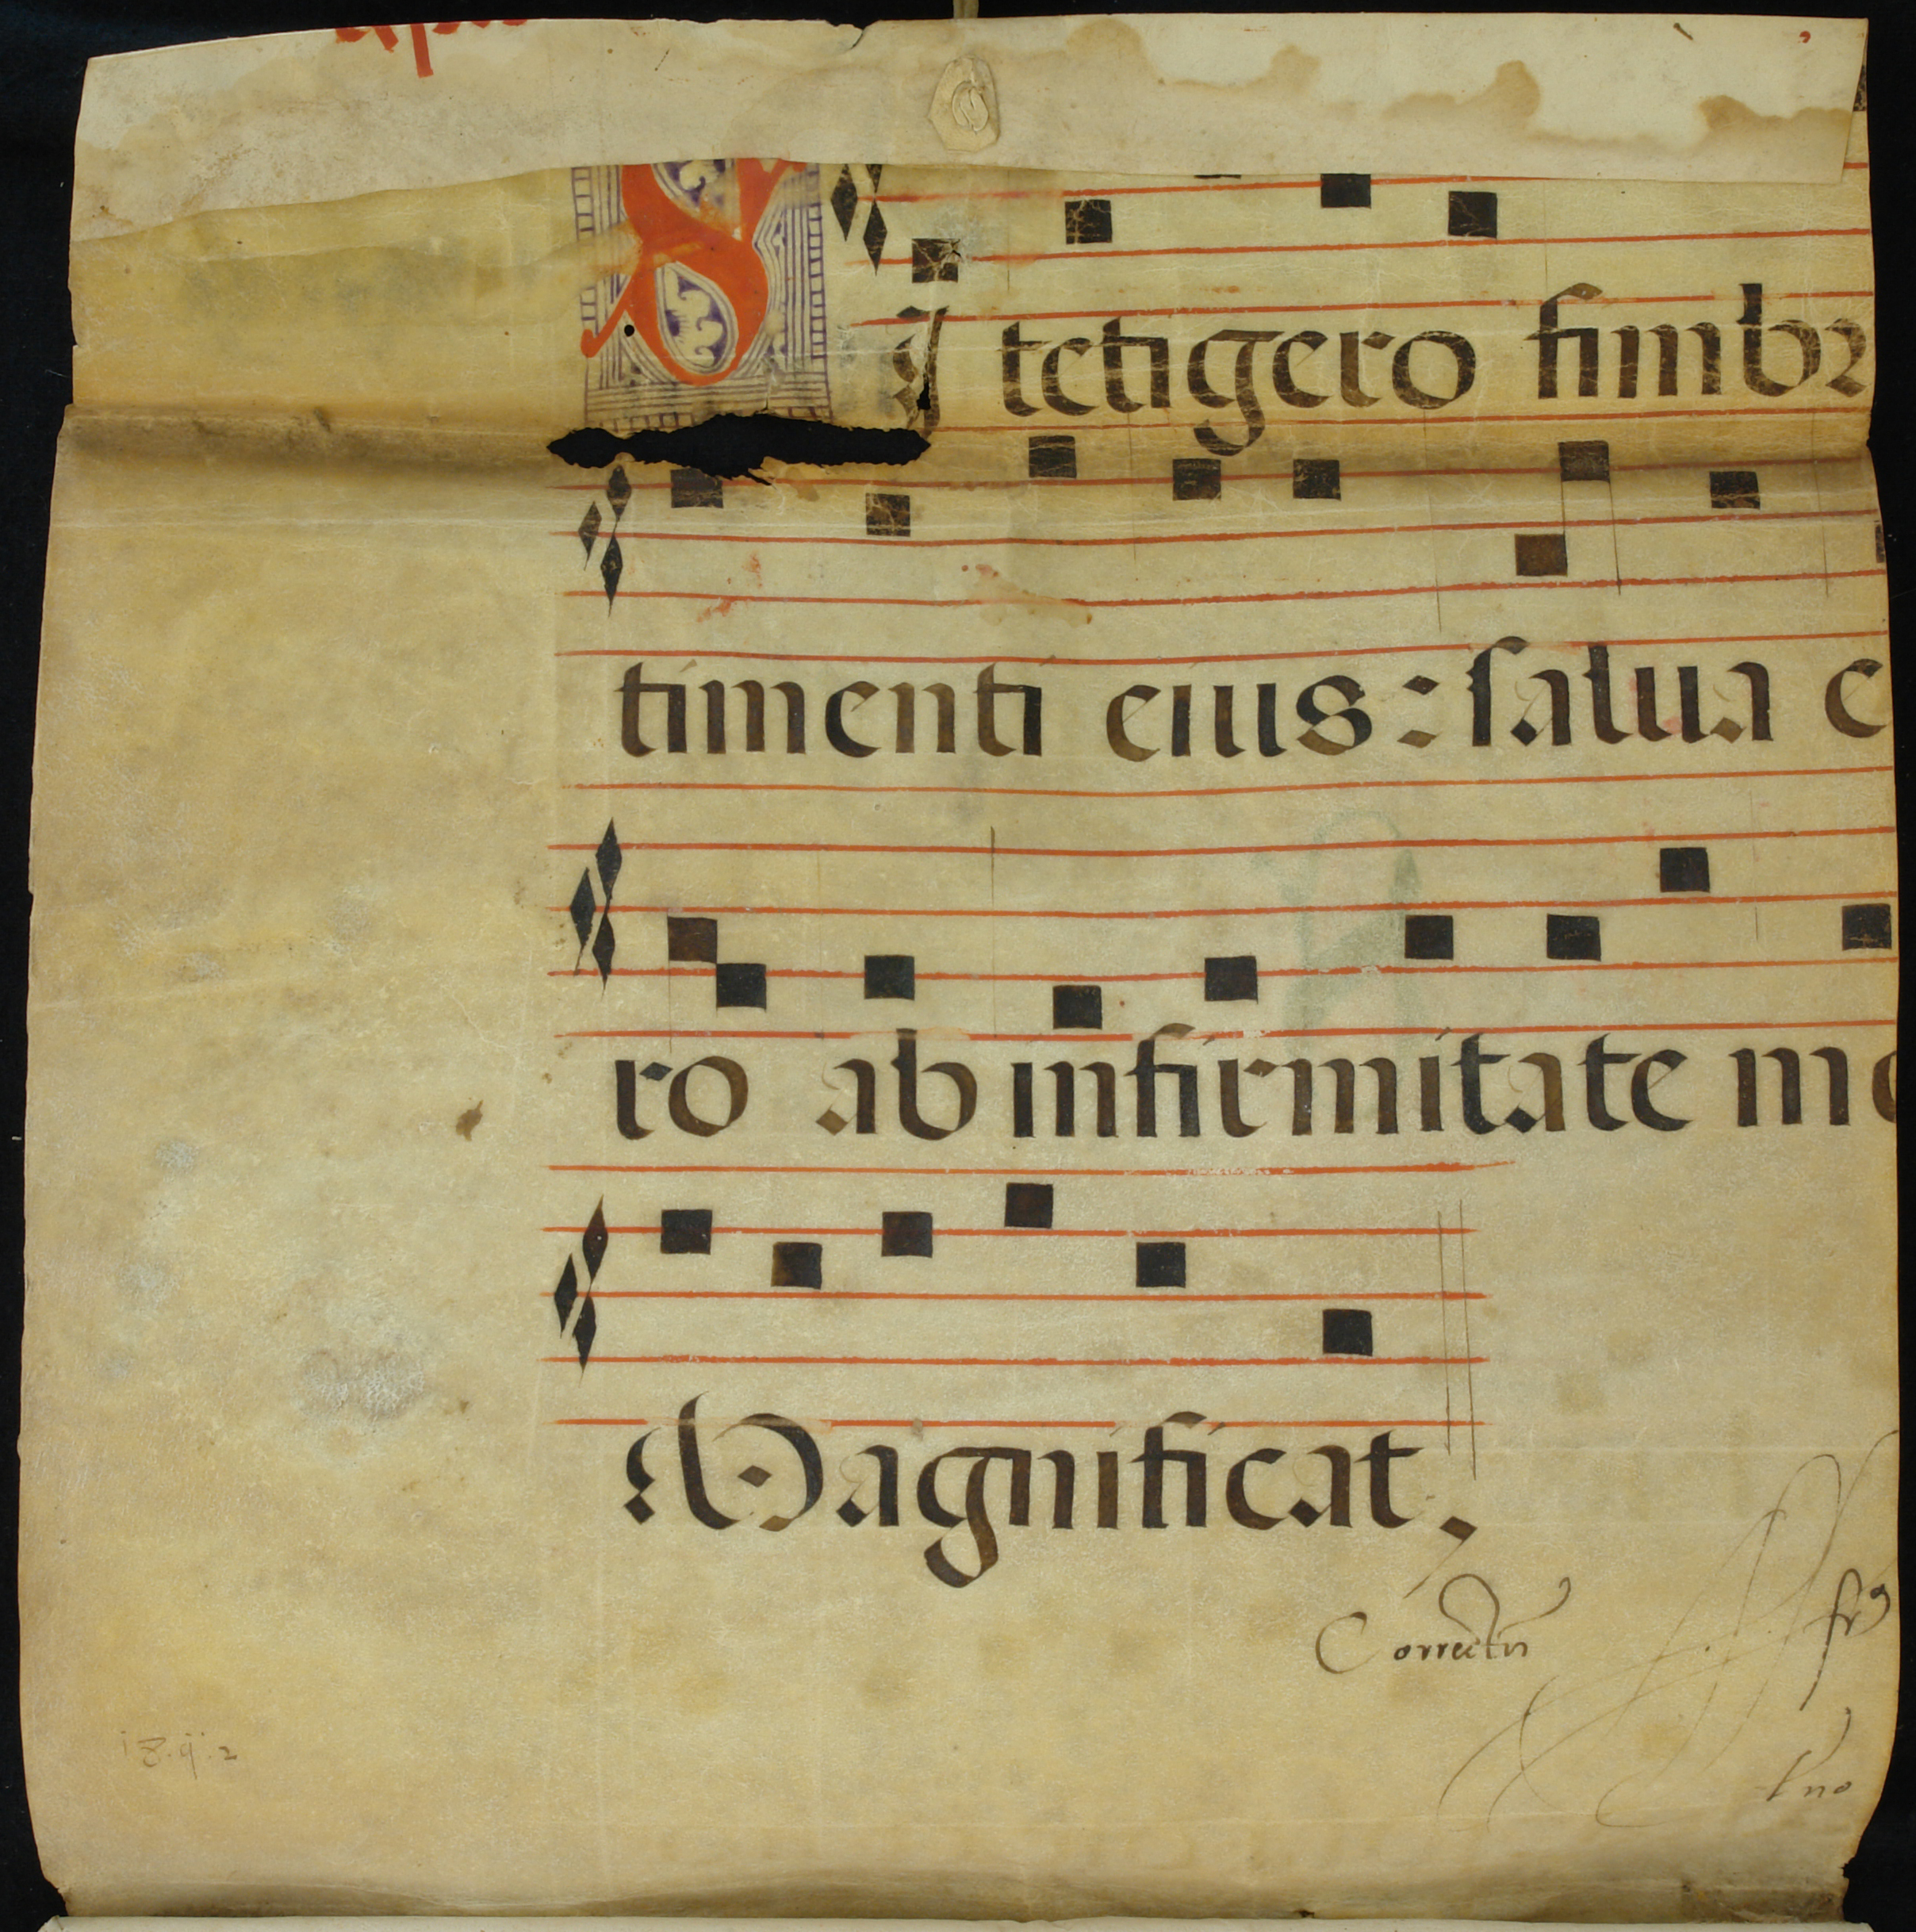 SI tetigero fimbr
timenti eius: salua e
ro ab infirmitate me
Magnificat.
Correctū